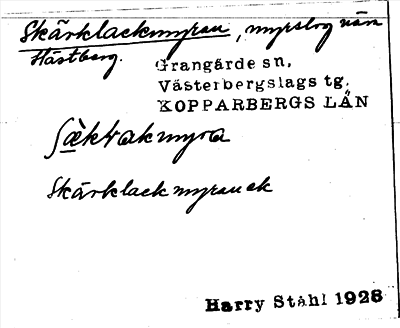 Skärklackmyran, myrslog nära
Hästberg.
Grangärde sn,
Västerbergslags tg,
KOPPARBERGS LÄN
ʃæ̀kɫakmyra
Skärklackmyran ek
Harry Ståhl 1928